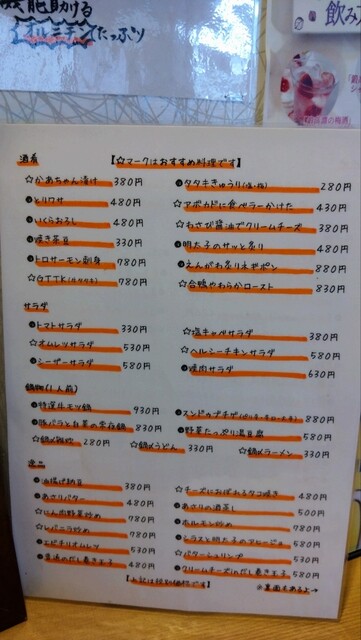 機能助ける
オルニチンたっぷり
飲み
酒肴
【☆マークはおすすめ料理です】
☆かあちゃん漬け 380円
●とりワサ 480円
●いくらおろし 480円
●焼き茶豆 330円
●トロサーモン刺身 780円
780円
●タタキきゅうり 280円
☆アボカドに食べラーかけた 430円
☆わさび醤油でクリームチーズ 380円
●明太子のサッと炙り 480円
●えんがわ炙りネギポン 880円
☆合鴨やわらかロースト 830円
サラダ
●トマトサラダ 330円
☆オムレツサラダ 530円
●シーザーサラダ 580円
☆塩キャベサラダ 380円
☆ヘルシーチキンサラダ 580円
●焼肉サラダ 630円
鍋物(1人前)
●特選牛モツ鍋 930円
●豚バラと白菜の常夜鍋 830円
☆鍋〆雑炊 280円
●スンドゥブチゲ 880円
●野菜たっぷり湯豆腐 580円
☆鍋〆うどん 330円
☆鍋〆ラーメン 330円
●油揚げ納豆 380円
●あさりバター 480円
☆にん肉野菜炒め 780円
☆レバニラ炒め 780円
●エビチリオムレツ 530円
●普通のだし巻き玉子 480円
☆チーズにおぼれるタコ焼き 480円
●あさりの酒蒸し 500円
●ホルモン炒め 780円
●シラスと明太子のアヒージョ 580円
☆バターシュリンプ 530円
●クリームチーズinだし巻き玉子 580円
【上記は税別価格です】
※裏面もあるよ→